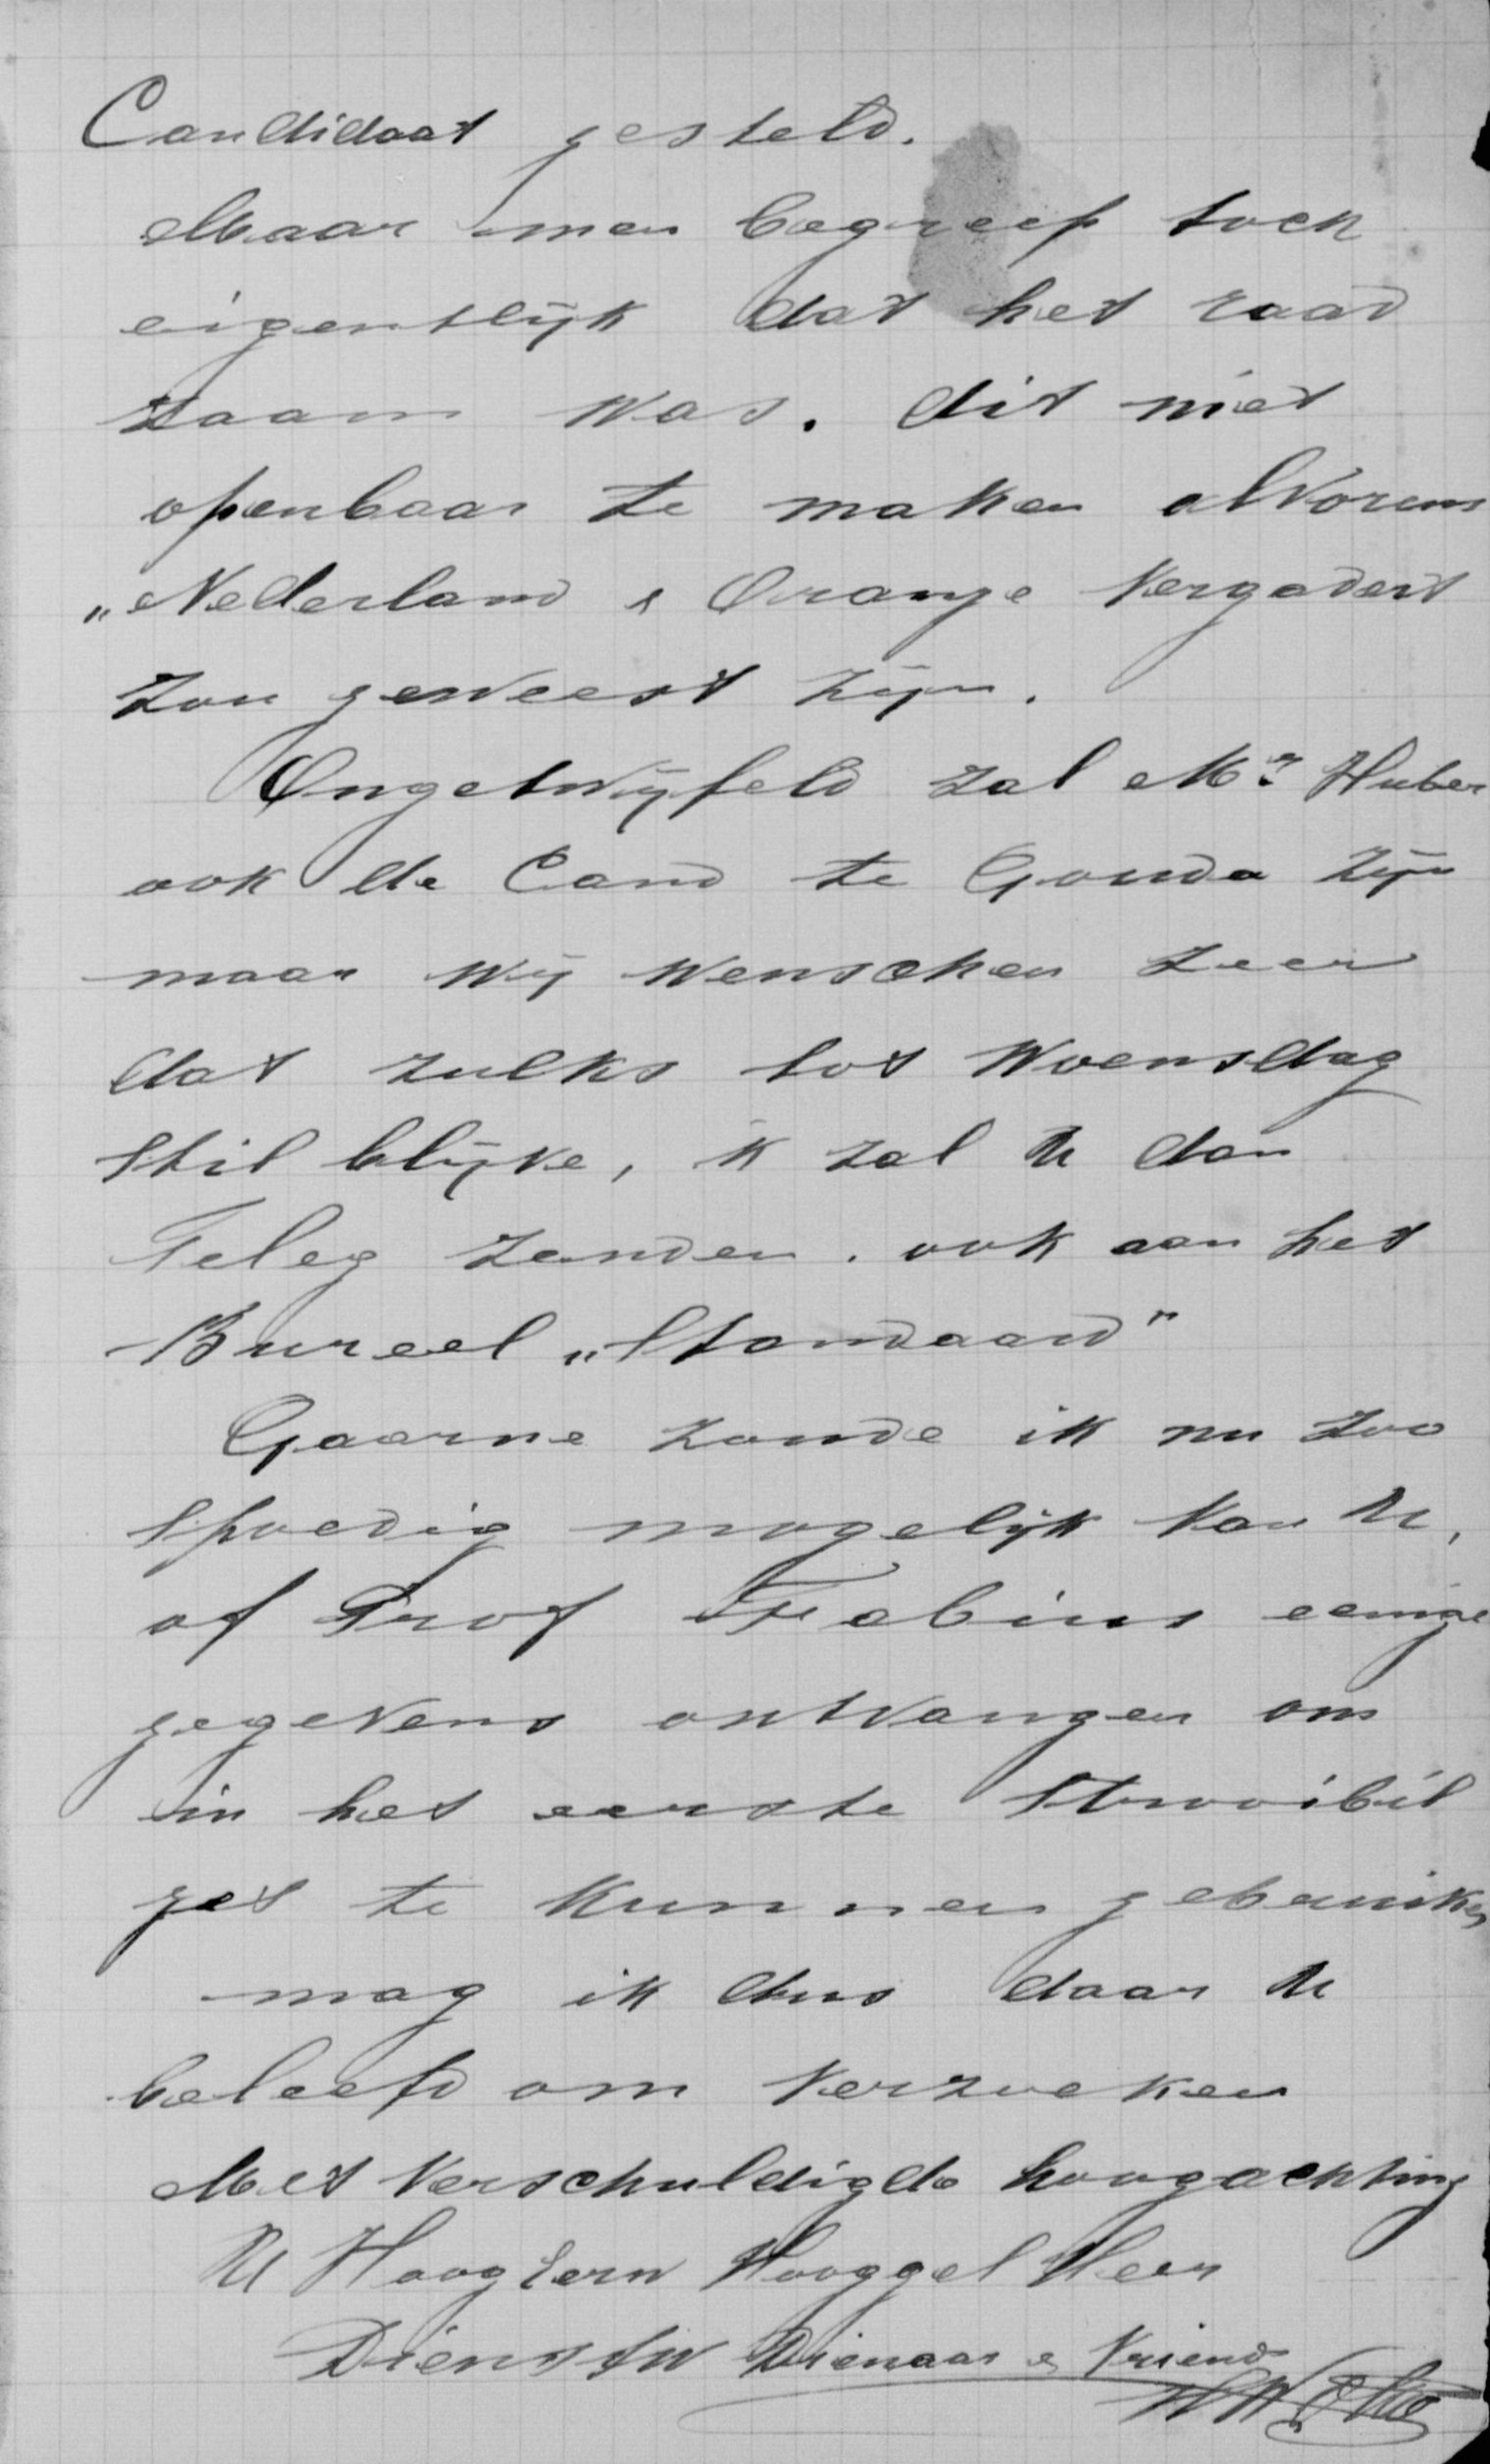 Candidaat gesteld.
Maar men begreep toch
eigentlijk dat het raad
zaam was. dit niet
openbaar te maken alvorens
„Nederland & Oranje vergaderd
zou geweest zijn.
Ongetwijfeld zal Mr. Huber
ook de Cand te Gouda zijn
maar wij wenschen zeer
dat zulks tot Woensdag
stil blijve, ik zal U dan
Teleg zenden. ook aan het
Bureel „Standaard"
Gaarne zoude ik nu zoo
spoedig mogelijk van U,
of Prof Fabius eenige
gegevens ontvangen om
in het eerste Strooibil
jet te kunnen gebruiken
mag ik dus daar U
beleefd om verzoeken
Met verschuldigde hoogachting
U HoogEerw Hooggel Heer
Dienstw Dienaar & Vriend